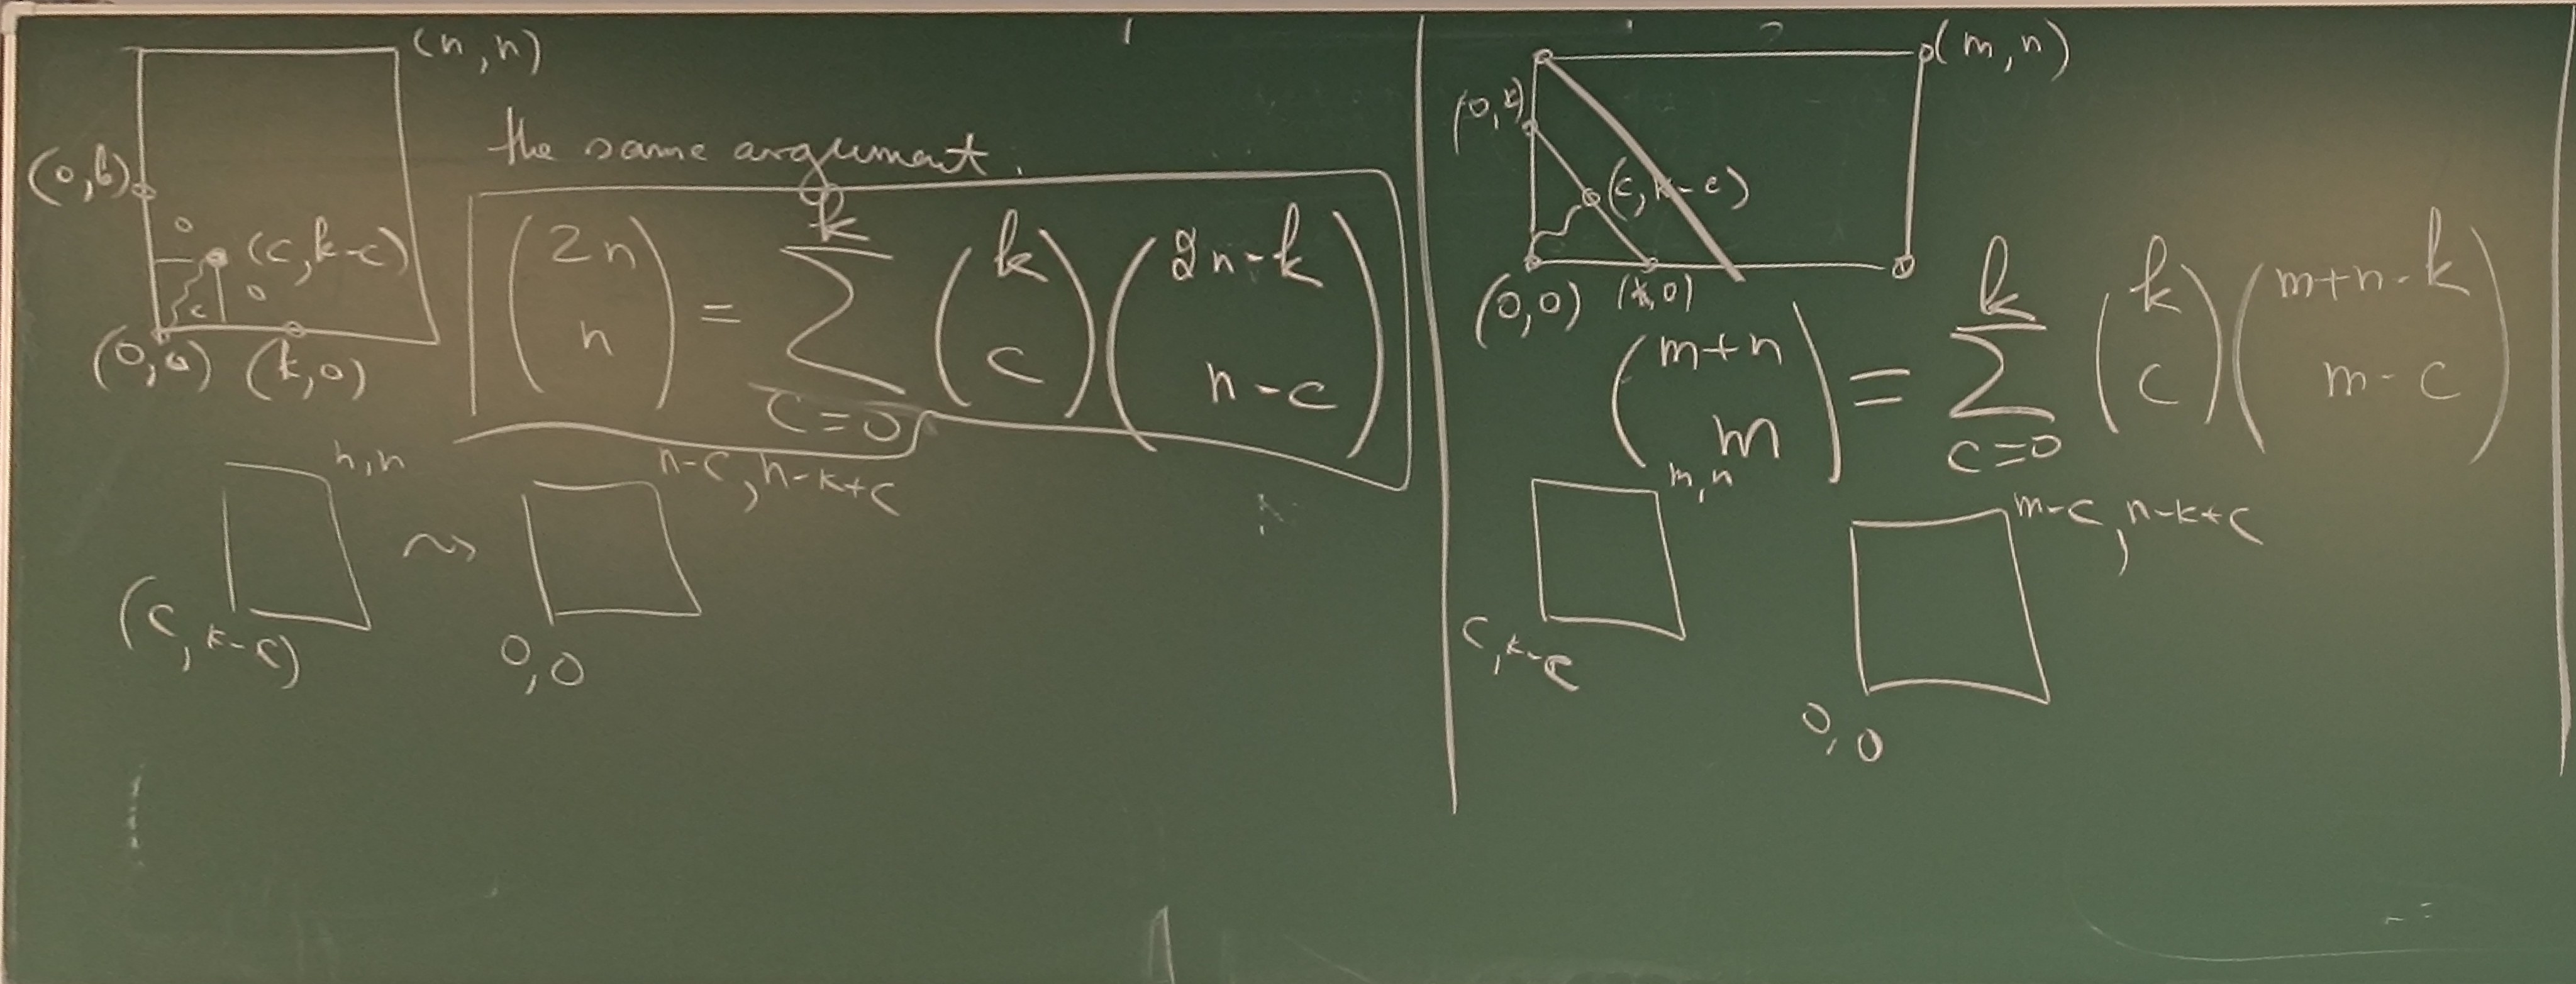 (n,n)
the same argument.
(0,k)
(c,k-c)
c
(0,0) (k,0)
\binom{2n}{n} = \sum_{c=0}^{k} \binom{k}{c} \binom{2n-k}{n-c}
n,n
(c,k-c)
n-c, n-k+c
0,0
(m,n)
(0,k)
(c,k-c)
(0,0) (k,0)
\binom{m+n}{m} = \sum_{c=0}^{k} \binom{k}{c} \binom{m+n-k}{m-c}
m,n
c,k-c
m-c, n-k+c
0,0